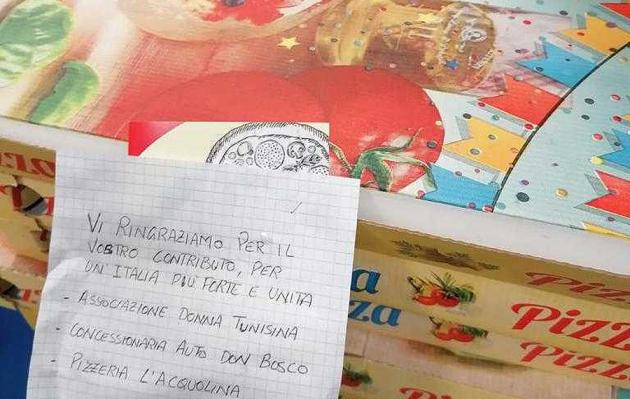 VI RINGRAZIAMO PER IL
VOSTRO CONTRIBUTO, PER
UN'ITALIA PIU' FORTE E UNITA
- ASSOCIAZIONE DONNA TUNISINA
- CONCESSIONARIA AUTO DON BOSCO
- PIZZERIA L'ACQUOLINA
PIZZ
PIZZ